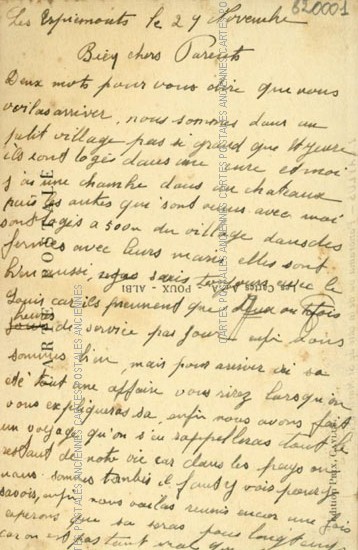 620001
Les Espiemonts le 29 Novembre
Bien chers Parents
Deux mots pour vous dire que nous
voilas arriver, nous sommes dans un
petit village pas si grand que
ils sont logis dans une cure et moi
j'ai une chambre dans un chateaux
puis les autres qui sont venus avec moi
sont logis a 500 m du village dans des
fermes avec leurs maris elles sont
bien aussi, suis toujours avec le
Louis car ils prennent que deux ou trois
heures de service pas jour enfin dons
sommes bien, mais pour arriver ici sa
eté tout une affaire vous rirez lorsqu'on
vous expliqueras sa, enfin nous avons fait
un voyage qu'on s'en rappelleras tout le
restant de notre vie car dans les pays ou
nous sommes tombés il faut y voir pour y
savoir, enfin nous voilas reunis encore une fois
esperons que sa seras pour longtemps
car on est tout vrai que
CARTE POSTALE
POUX ALBI
CARTES POSTALES ANCIENNES CARTES POSTALES ANCIENNES CARTES POSTALES ANCIENNES